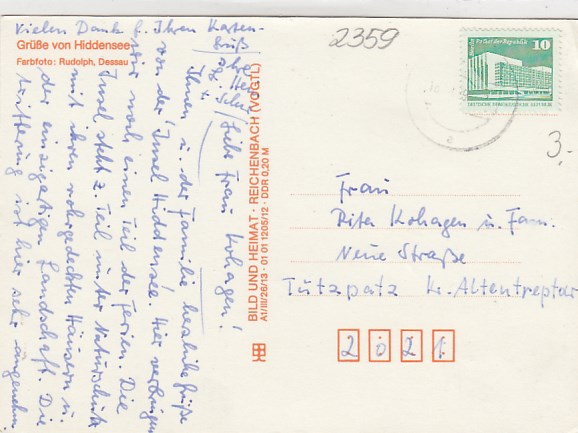 Vielen Dank f. Ihren Karten-
gruß
Grüße von Hiddensee
Farbfoto: Rudolph, Dessau
Liebe Frau Kohagen!
Ihnen u. der Familie herzliche Grüße
von der Insel Hiddensee. Hier verbringen
wir noch einen Teil der Ferien. Die
Insel steht z. Teil unter Naturschutz
mit ihren rohrgedeckten Häusern u.
der einzigartigen Landschaft. Die
ist hier sehr angenehm
BILD UND HEIMAT · REICHENBACH (VOGTL)
A1/III/26/13 · 01 01 1205/12 · DDR 0,20 M
2359
10
DEUTSCHE DEMOKRATISCHE REPUBLIK
3.-
Frau
Rita Kohagen u. Fam.
Neue Straße
Tützpatz Kr. Altentreptow
2021